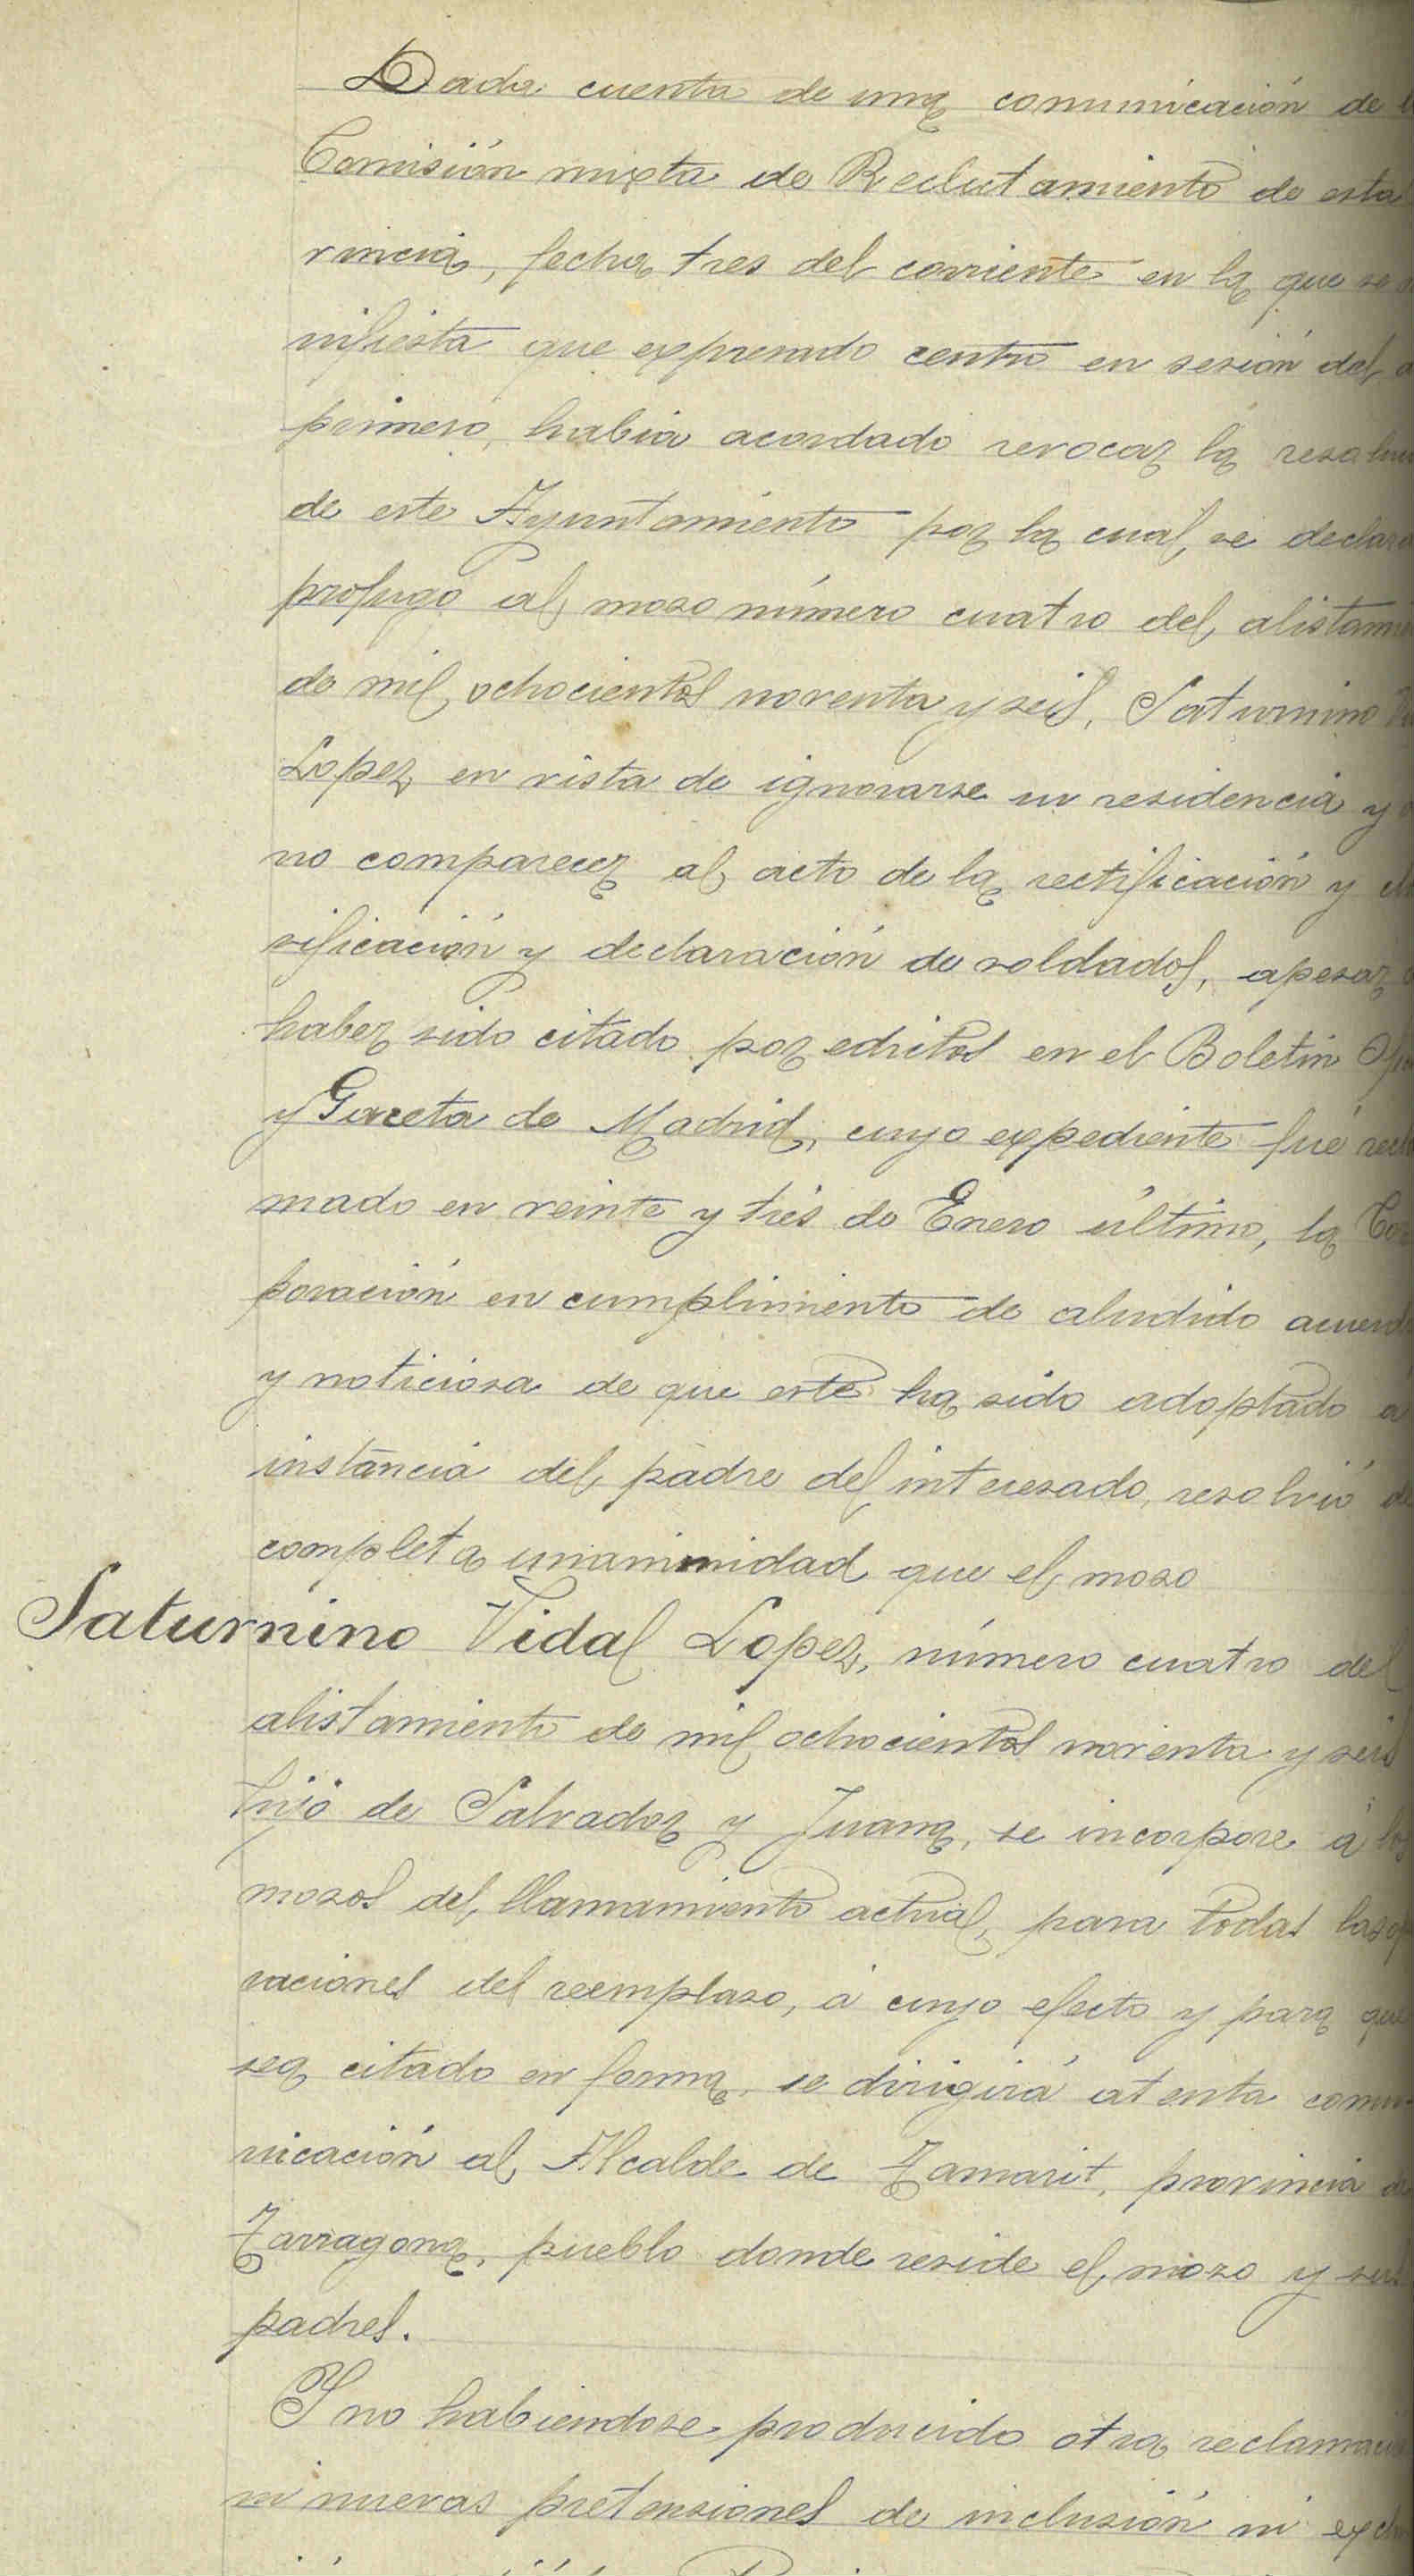 Dada cuenta de una comunicación de
Comisión mixta de Reclutamiento de esta
vincia, fecha tres del corriente en la que se
nifiesta que expresado centro en sesión del
primero, habia acordado revocar la resolu
de este Ayuntamiento por la cual, se declaró
profugo al mozo número cuatro del alistami
de mil ochocientos noventa y seis, Saturnino Vi
Lopez en vista de ignorarse su residencia y
no comparecer al acto de la rectificación y cla
sificación y declaración de soldados, apesar
haber sido citado por edictos en el Boletin Ofi
y Gaceta de Madrid, cuyo expediente fué recla
mado en veinte y trés de Enero último, la Cor
poración en cumplimiento de aludido acuerdo
y noticiosa de que este ha sido adoptado a
instancia del padre del interesado, resolvió de
completa unanimidad que el mozo
Saturnino Vidal Lopez, número cuatro del
alistamiento de mil ochocientos noventa y seis
hijo de Salvador y Juana, se incorpore á los
mozos del llamamiento actual, para todas las op
raciones del reemplaso, á cuyo efecto y para que
sea citado en forma, se dirigirá atenta comu-
nicación al Alcalde de Tamarit, provincia de
Tarragona, pueblo donde reside el mozo y sus
padres.
Y no habiendose producido otra reclamació
ni nuevas pretensiones de inclusión ni exclu